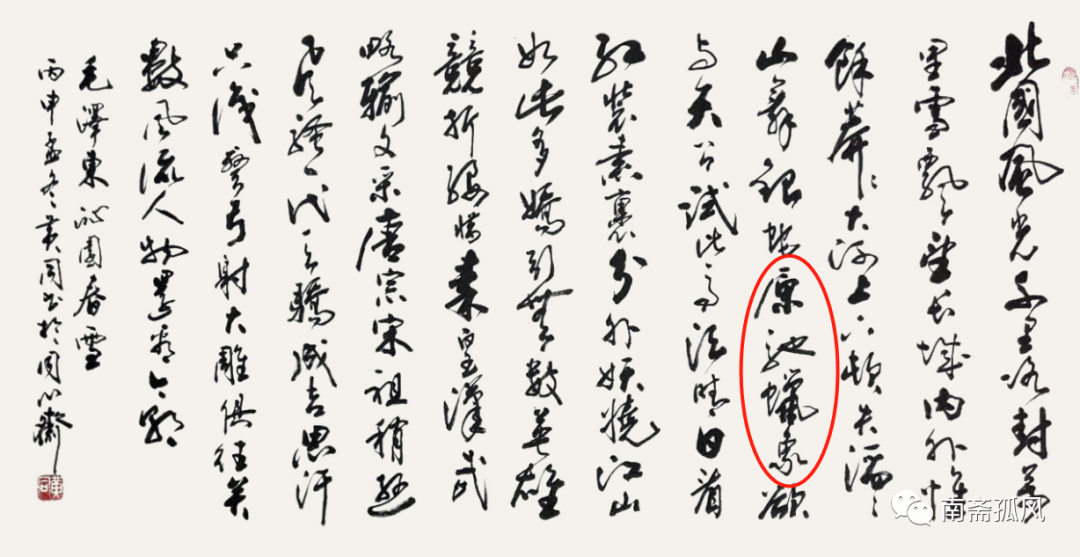 北國風光千里冰封萬
里雪飄望長城内外惟
餘莽〻大河上下頓失滔〻
山舞銀蛇原馳蠟象欲
与天公試比高須晴日看
紅裝素裹分外妖嬈江山
如此多嬌引無數英雄
競折腰惜秦皇漢武
略輸文采唐宗宋祖稍遜
風騷一代天驕成吉思汗
只識彎弓射大雕俱往矣
數風流人物還看今朝
毛澤東沁園春雪
丙申孟冬黄同书於同心齋
南斋孤风